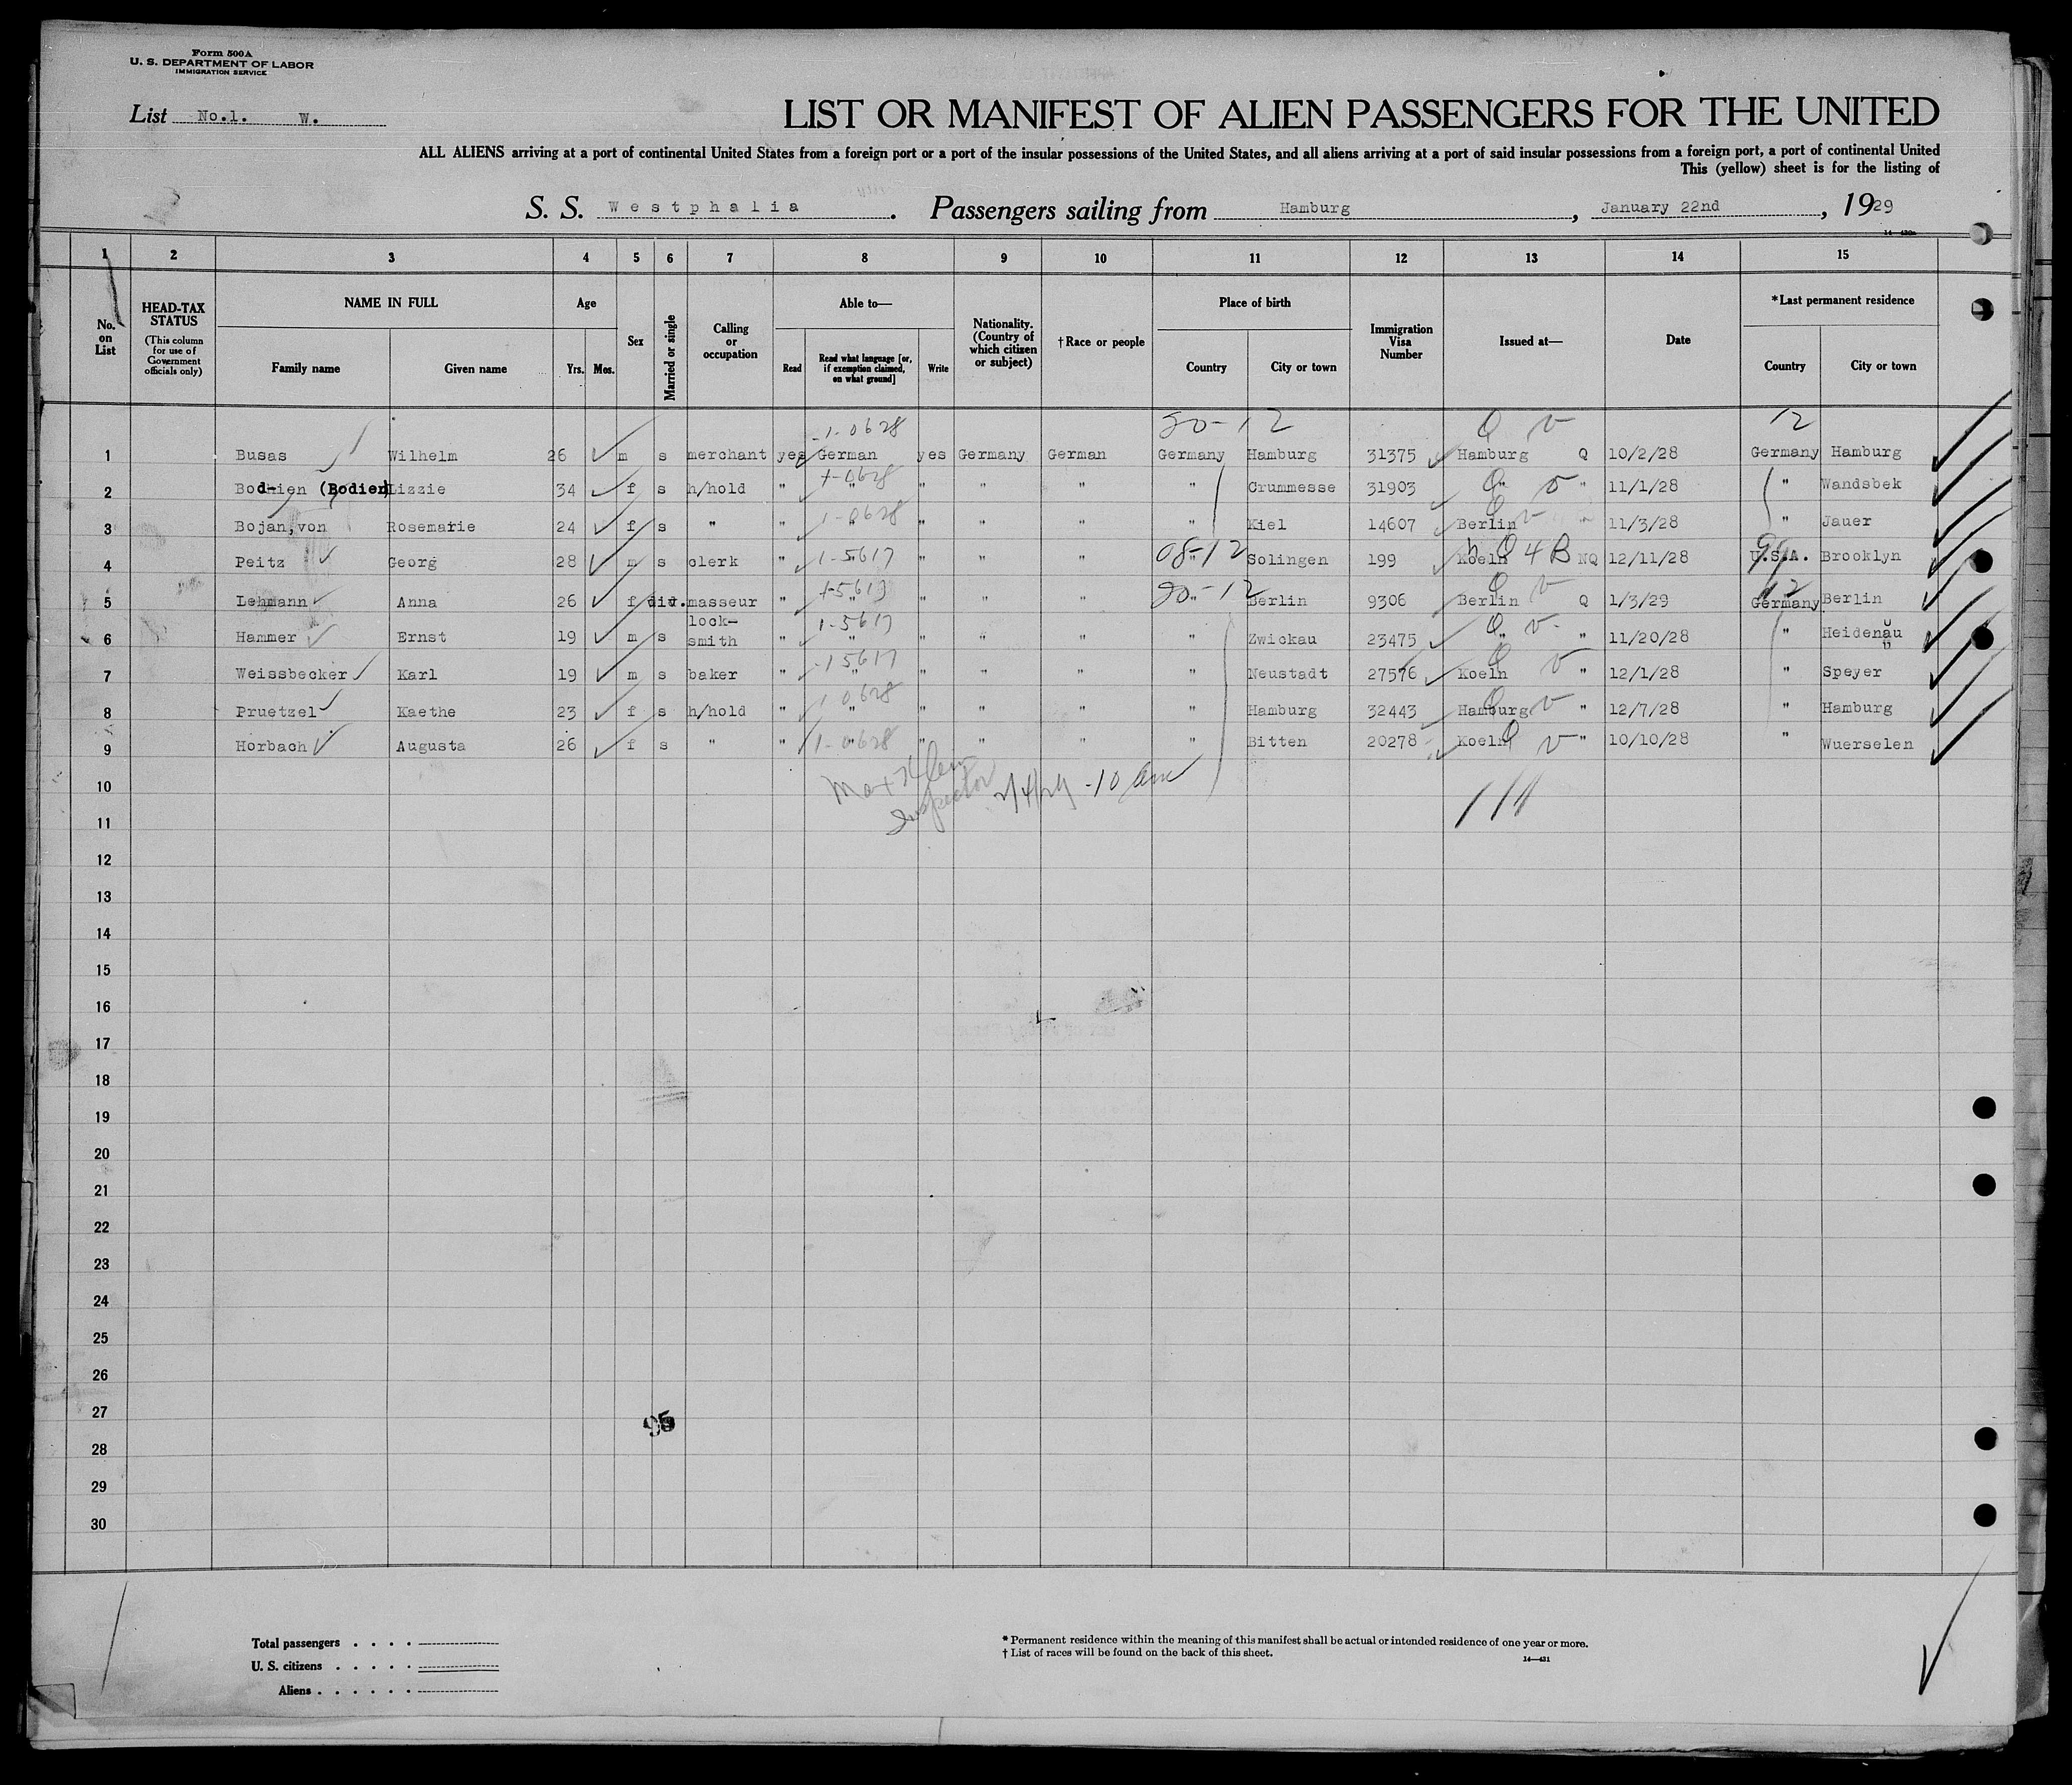 Form 500A
U. S. DEPARTMENT OF LABOR
IMMIGRATION SERVICE
List No.1. W.
LIST OR MANIFEST OF ALIEN PASSENGERS FOR THE UNITED
ALL ALIENS arriving at a port of continental United States from a foreign port or a port of the insular possessions of the United States, and all aliens arriving at a port of said insular possessions from a foreign port, a port of continental United
This (yellow) sheet is for the listing of
S. S. Westphalia. Passengers sailing from Hamburg, January 22nd, 1929
1 2 3 4 5 6 7 8 9 10 11 12 13 14 15
No. on List
HEAD-TAX STATUS
(This column for use of Government officials only)
NAME IN FULL
Family name Given name
Age
Yrs. Mos.
Sex
Married or single
Calling or occupation
Able to—
Read Read what language [or, if exemption claimed, on what ground] Write
Nationality. (Country of which citizen or subject)
†Race or people
Place of birth
Country City or town
Immigration Visa Number
Issued at—
Date
*Last permanent residence
Country City or town
1-0628 12
1 Busas Wilhelm 26 m s merchant yes German yes Germany German Germany Hamburg 31375 Hamburg Q 10/2/28 Germany Hamburg
2 Bod-ien (Bodien) Lizzie 34 f s h/hold " " " " " " Crummesse 31903 " " 11/1/28 " Wandsbek
1-0628
3 Bojan,von Rosemarie 24 f s " " " " " " " Kiel 14607 Berlin " 11/3/28 " Jauer
4 Peitz Georg 28 m s clerk " 1-5617 " " " 08-12 Solingen 199 Koeln 4 B NQ 12/11/28 U.S.A. Brooklyn
5 Lehmann Anna 26 f did. masseur " " " " " " Berlin 9306 Berlin Q 1/3/29 Germany Berlin
1-5617
6 Hammer Ernst 19 m s lock-smith " " " " " " Zwickau 23475 " " 11/20/28 " Heidenau
15617
7 Weissbecker Karl 19 m s baker " " " " " " Neustadt 27576 Koeln " 12/1/28 " Speyer
1 0628
8 Pruetzel Kaethe 23 f s h/hold " " " " " " Hamburg 32443 Hamburg " 12/7/28 " Hamburg
9 Horbach Augusta 26 f s " " 1-0628 " " " " Bitten 20278 Koeln " 10/10/28 " Wuerselen
Inspector 2/4/29 -10 am
10
11
12
13
14
15
16
17
18
19
20
21
22
23
24
25
26
27
95
28
29
30
Total passengers . . . .
U. S. citizens . . . . .
Aliens . . . . . .
* Permanent residence within the meaning of this manifest shall be actual or intended residence of one year or more.
† List of races will be found on the back of this sheet.
14—431